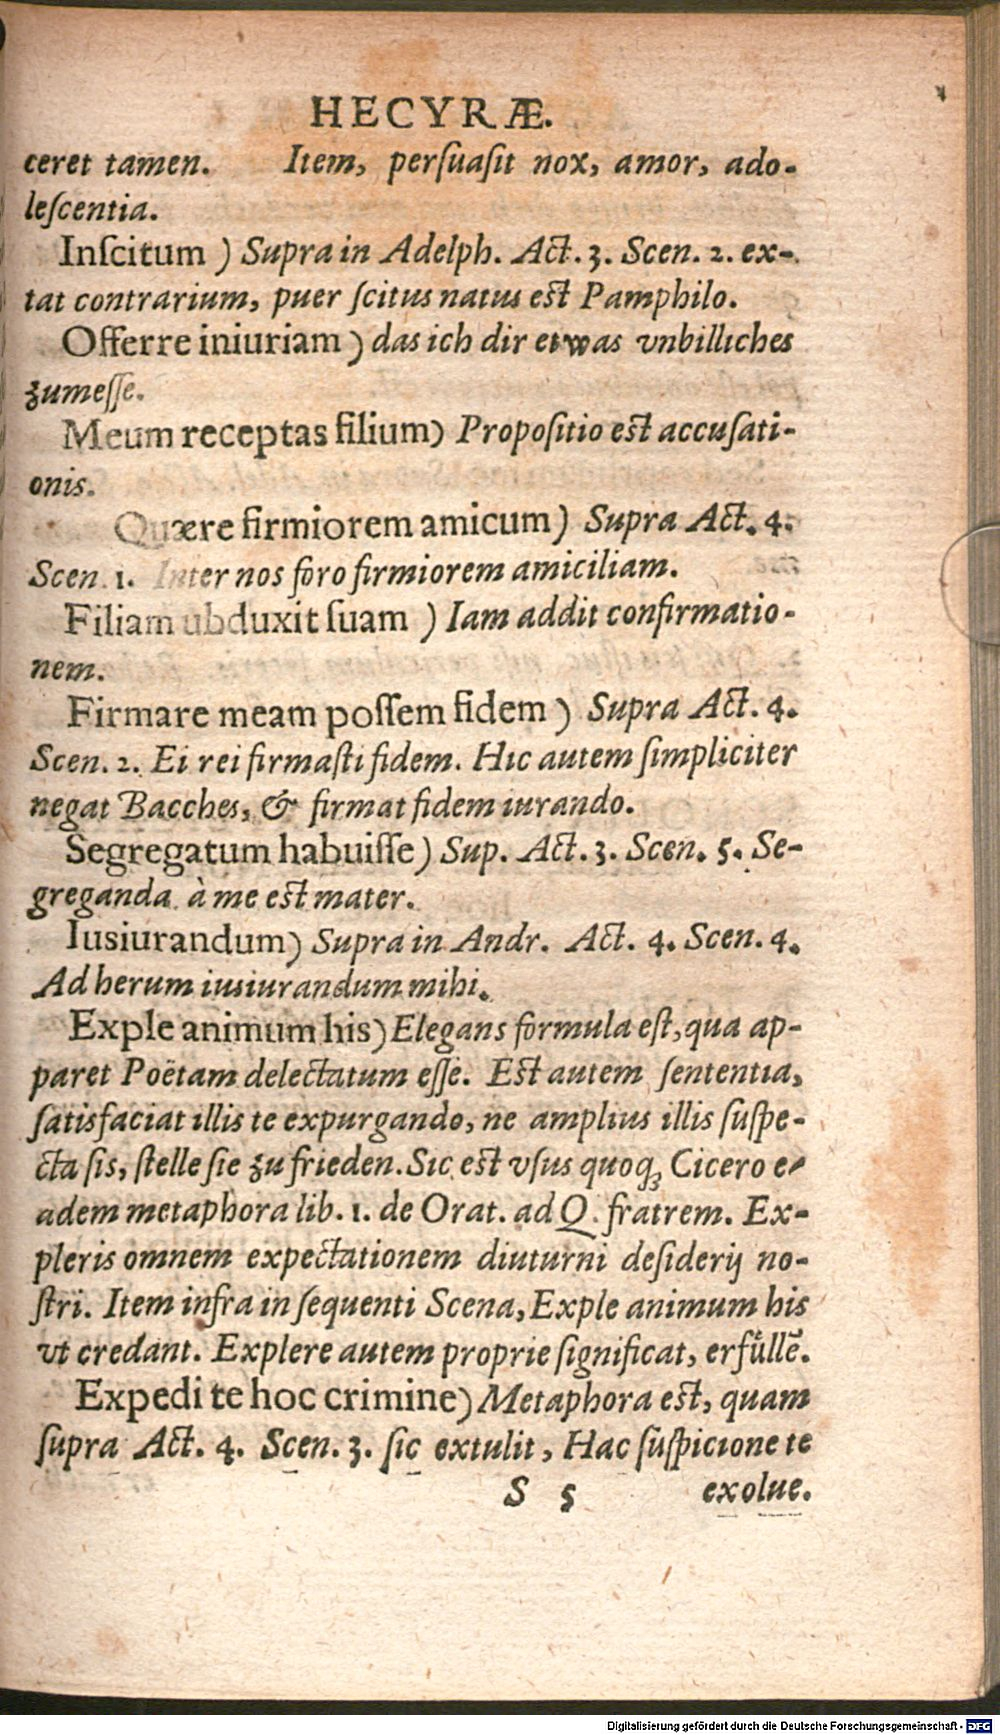 HECYRÆ.
ceret tamen. Item, persuasit nox, amor, ado-
lescentia.
Inscitum ) Supra in Adelph. Act. 3. Scen. 2. ex-
tat contrarium, puer scitus natus est Pamphilo.
Offerre iniuriam ) das ich dir etwas vnbilliches
zumesse.
Meum receptas filium) Propositio est accusati-
onis.
Quære firmiorem amicum) Supra Act. 4.
Scen. 1. Inter nos foro firmiorem amiciliam.
Filiam ubduxit suam ) Iam addit confirmatio-
nem.
Firmare meam possem fidem ) Supra Act. 4.
Scen. 2. Ei rei firmasti fidem. Hic autem simpliciter
negat Bacches, & firmat fidem iurando.
Segregatum habuisse ) Sup. Act. 3. Scen. 5. Se-
greganda à me est mater.
Iusiurandum) Supra in Andr. Act. 4. Scen. 4.
Ad herum iusiurandum mihi.
Exple animum his) Elegans formula est, qua ap-
paret Poëtam delectatum esse. Est autem sententia,
satisfaciat illis te expurgando, ne amplius illis suspe-
cta sis, stelle sie zu frieden. Sic est vsus quoq; Cicero e-
adem metaphora lib. 1. de Orat. ad Q. fratrem. Ex-
pleris omnem expectationem diuturni desiderij no-
stri. Item infra in sequenti Scena, Exple animum his
vt credant. Explere autem proprie significat, erfüllē.
Expedi te hoc crimine) Metaphora est, quam
supra Act. 4. Scen. 3. sic extulit, Hac suspicione te
S 5 exolue.
Digitalisierung gefördert durch die Deutsche Forschungsgemeinschaft - DFG